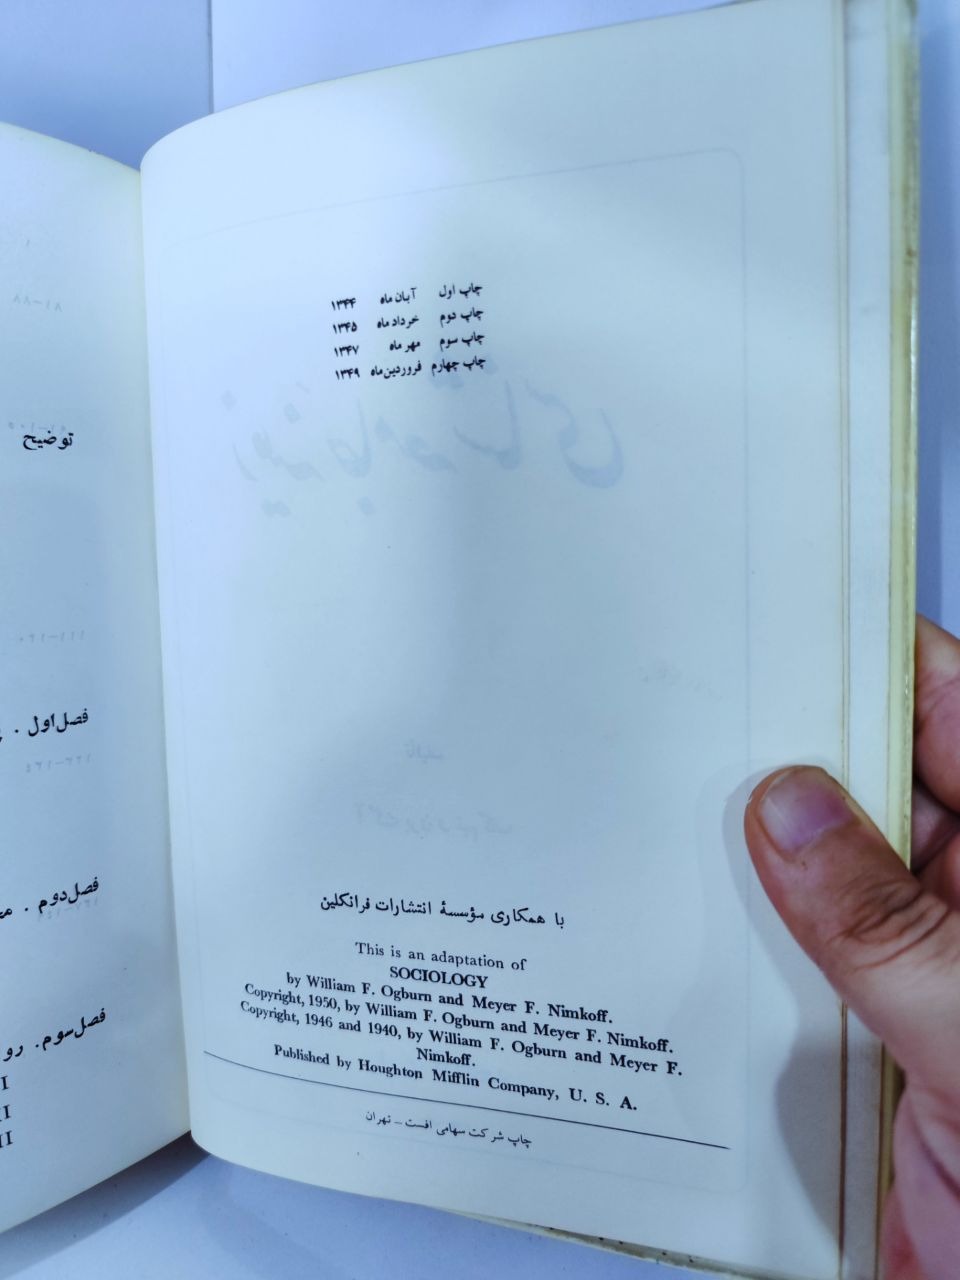 چاپ اول آبان ماه ۱۳۴۴
چاپ دوم خرداد ماه ۱۳۴۵
چاپ سوم مهر ماه ۱۳۴۷
چاپ چهارم فروردین‌ماه ۱۳۴۹
با همکاری مؤسسهٔ انتشارات فرانکلین
This is an adaptation of
SOCIOLOGY
by William F. Ogburn and Meyer F. Nimkoff.
Copyright, 1950, by William F. Ogburn and Meyer F. Nimkoff.
Copyright, 1946 and 1940, by William F. Ogburn and Meyer F.
Nimkoff.
Published by Houghton Mifflin Company, U. S. A.
چاپ شرکت سهامی افست - تهران
توضیح
فصل اول .
فصل دوم .
فصل سوم . رو
I
II